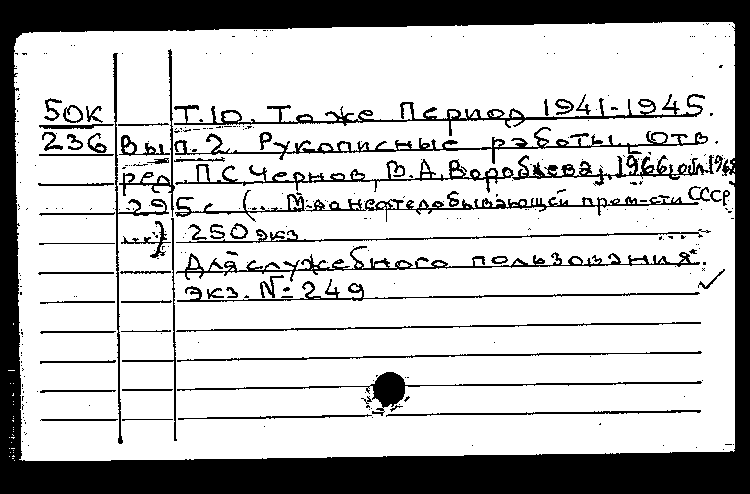 50К Т.10. То же Период 1941-1945.
236 Вып. 2. Рукописные работы, Отв.
ред. П.С. Чернов, В.А. Воробьева, 1966
295 с (... М-во нефтедобывающей пром-сти СССР
...) 250 экз.
Для служебного пользования.
экз. № 249